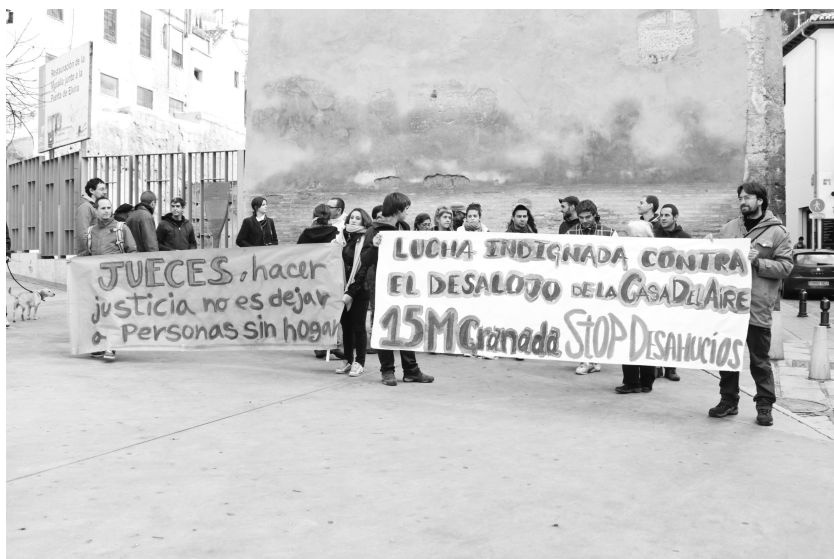 Restauración de la
Muralla junto a la
Puerta de Elvira
JUECES, hacer
justicia no es dejar
a personas sin hogar
LUCHA INDIGNADA CONTRA
EL DESALOJO DE LA CASA DEL AIRE
15M Granada STOP DESAHUCIOS